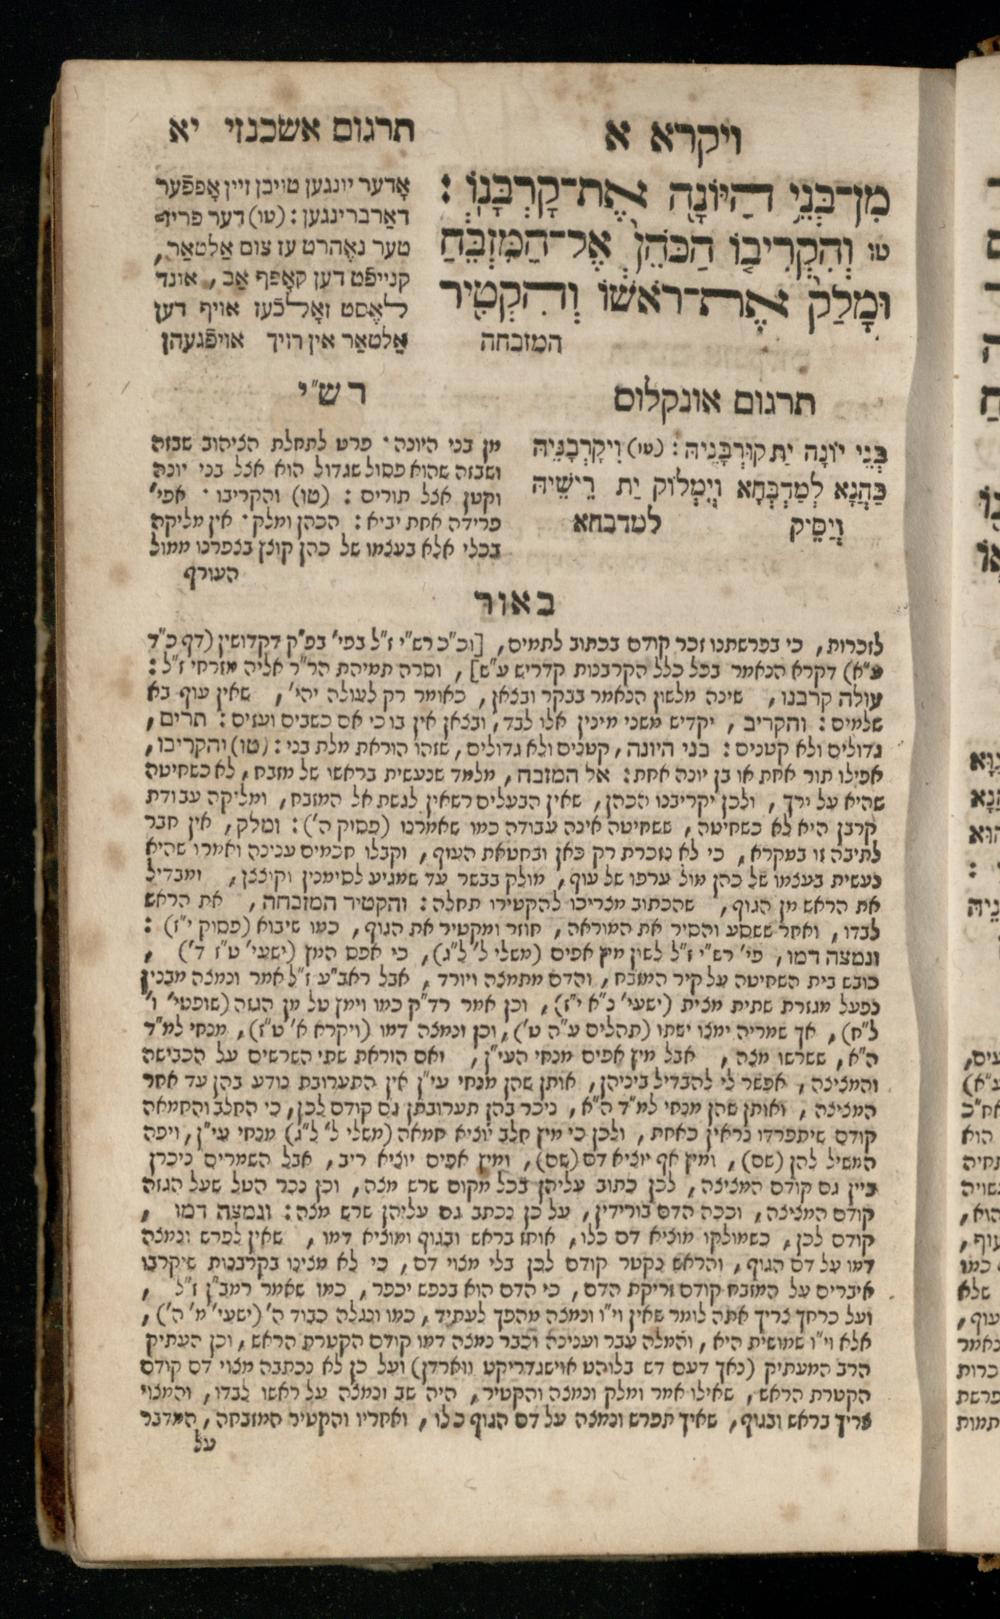 ויקרא א
תרגום אשכנזי יא
מִן־בְּנֵי הַיּוֹנָה אֶת־קָרְבָּנוֹ :
טו וְהִקְרִיבוֹ הַכֹּהֵן אֶל־הַמִּזְבֵּחַ
וּמָלַק אֶת־רֹאשׁוֹ וְהִקְטִיר
המזבחה
אָדער יונגען טויבן זיין אָפּפֿער
דאַרברינגען : (טו) דער פריז־
טער נאֶהרט עז צום אַלטאַר,
קנייפֿט דען קאָפּף אַב , אונד
לאֶסט זאָלכֿעז אויף דען
אַלטאַר אין רויך אויפֿגעהן
תרגום אונקלוס
בְּנֵי יוֹנָה יַת קוּרְבָּנֵיהּ : (טו) וִיקָרְבִנֵּיהּ
כַּהֲנָא לְמַדְבְּחָא וְיִמְלוֹק יַת רֵישֵׁיהּ
וְיַסֵּיק למדבחא
רש״י
מן בני היונה · פרט לתחלת הציהוב שבזה
ושבזה שהוא פסול שגדול הוא אצל בני יונה
וקטן אצל תורים : (טו) והקריבו · אפי׳
פרידה אחת יביא : הכהן ומלק · אין מליקה
בכלי אלא בעצמו של כהן קוצץ בצפרנו ממול
העורף
באור
לזכרות, כי בפרשתנו זכר קודם בכתוב לתמים, [וכ״כ רש״י ז״ל בפי׳ בפ״ק דקדושין (דף כ״ד
ע״א) דקרא הנאמר בכל כלל הקרבנות קדריש ע״ש], וסרה תמיהת הר״ר אליה מזרחי ז״ל :
עולה קרבנו, שינה מלשון הנאמר בבקר ובצאן, כאומר רק לעולה יהי׳, שאין עוף בא
שלמים : והקריב, יקדיש משני מינין אלו לבד, ובצאן אין בו כי אם כשבים ועזים : תרים,
גדולים ולא קטנים : בני היונה, קטנים ולא גדולים, שזהו הוראת מלת בני : (טו) והקריבו,
אפילו תור אחת או בן יונה אחת : אל המזבח, מלמד שנעשית בראשו של מזבח, לא כשחיטה
שהיא על ירך, ולכן יקריבנו הכהן, שאין הבעלים רשאין לגשת אל המזבח, ומליקה עבודת
קרבן היא לא כשחיטה, ששחיטה אינה עבודה כמו שאמרנו (פסוק ה׳) : ומלק, אין חבר
לתיבה זו במקרא, כי לא נזכרת רק כאן ובחטאת העוף, וקבלו חכמים ענינה ואמרו שהיא
נעשית בעצמו של כהן מול ערפו של עוף, מולק בבשר עד שמגיע לסימנין וקוצצן, ומבדיל
את הראש מן הגוף, שהכתוב מצריכו להקטירו תחלה : והקטיר המזבחה, את הראש
לבדו, ואחר ששסע והסיר את המוראה, חוזר ומקטיר את הגוף, כמו שיבוא (פסוק י״ז) :
ונמצה דמו, פי׳ רש״י ז״ל לשון מיץ אפים (משלי ל׳ ל״ג), כי אפס המץ (ישעי׳ ט״ז ד׳),
כובש בית השחיטה על קיר המזבח, והדם מתמצה ויורד, אבל ראב״ע ז״ל אמר ונמצה מבנין
נפעל מגזרת שתית מצית (ישעי׳ נ״א י״ז), וכן אמר רד״ק כמו וימץ טל מן הגזה (שופטי׳ ו׳
ל״ח), אך שמריה ימצו ישתו (תהלים ע״ה ט׳), וכן ונמצה דמו (ויקרא א׳ ט״ז), מנחי למ״ד
ה״א, ששרשו מצה, אבל מיץ אפים מנחי העי״ן, ואם הוראת שתי השרשים על הכבישה
והמציצה, אפשר לי להבדיל ביניהן, אותן שהן מנחי עי״ן אין התערובת נודע בהן עד אחר
המציצה, ואותן שהן מנחי למ״ד ה״א, ניכר בהן תערובתן גם קודם לכן, כי החלב והחמאה
קודם שיתפרדו נראין כאחת, ולכן כי מיץ חלב יוציא חמאה (משלי ל׳ ל״ג) מנחי עי״ן, ויפה
המשיל להן (שם), ומיץ אף יוציא דם (שם), ומיץ אפים יוציא ריב, אבל השמרים ניכרן
ביין גם קודם המציצה, לכן כתוב עליהן בכל מקום שרש מצה, וכן נכר הטל שעל הגזה
קודם המציצה, וככה הדם בורידין, על כן נכתב גם עליהן שרש מצה : ונמצה דמו,
קודם לכן, כשמולקו מוציא דם כלו, אותו בראש ובגוף ומוציא דמו, שאין לפרש ונמצה
דמו על דם הגוף, והראש נקטר קודם לכן בלי מצוי דם, כי לא מצינו בקרבנות שיקרבו
איברים על המזבח קודם זריקת הדם, כי הדם הוא בנפש יכפר, כמו שאמר רמב״ן ז״ל,
ועל כרחך צריך אתה לומר שאין וי״ו ונמצה מהפך לעתיד, כמו ונגלה כבוד ה׳ (ישעי׳ מ׳ ה׳),
אלא וי״ו שמושית היא, והמלה עבר ועניכה וכבר נמצה דמו קודם הקטרת הראש, וכן העתיק
הרב המעתיק (נאך דעם דש בלוהט אויסגדריקט ווארדן) ועל כן לא נכתבה מצוי דם קודם
הקטרת הראש, שאילו אמר ומלק ונמצה והקטיר, היה שב ונמצה על ראשו לבדו, והמצוי
צריך בראש ובגוף, שאיך תפרש ונמצה על דם הגוף כלו, ואחריו והקטיר המזבחה, המדבר
על